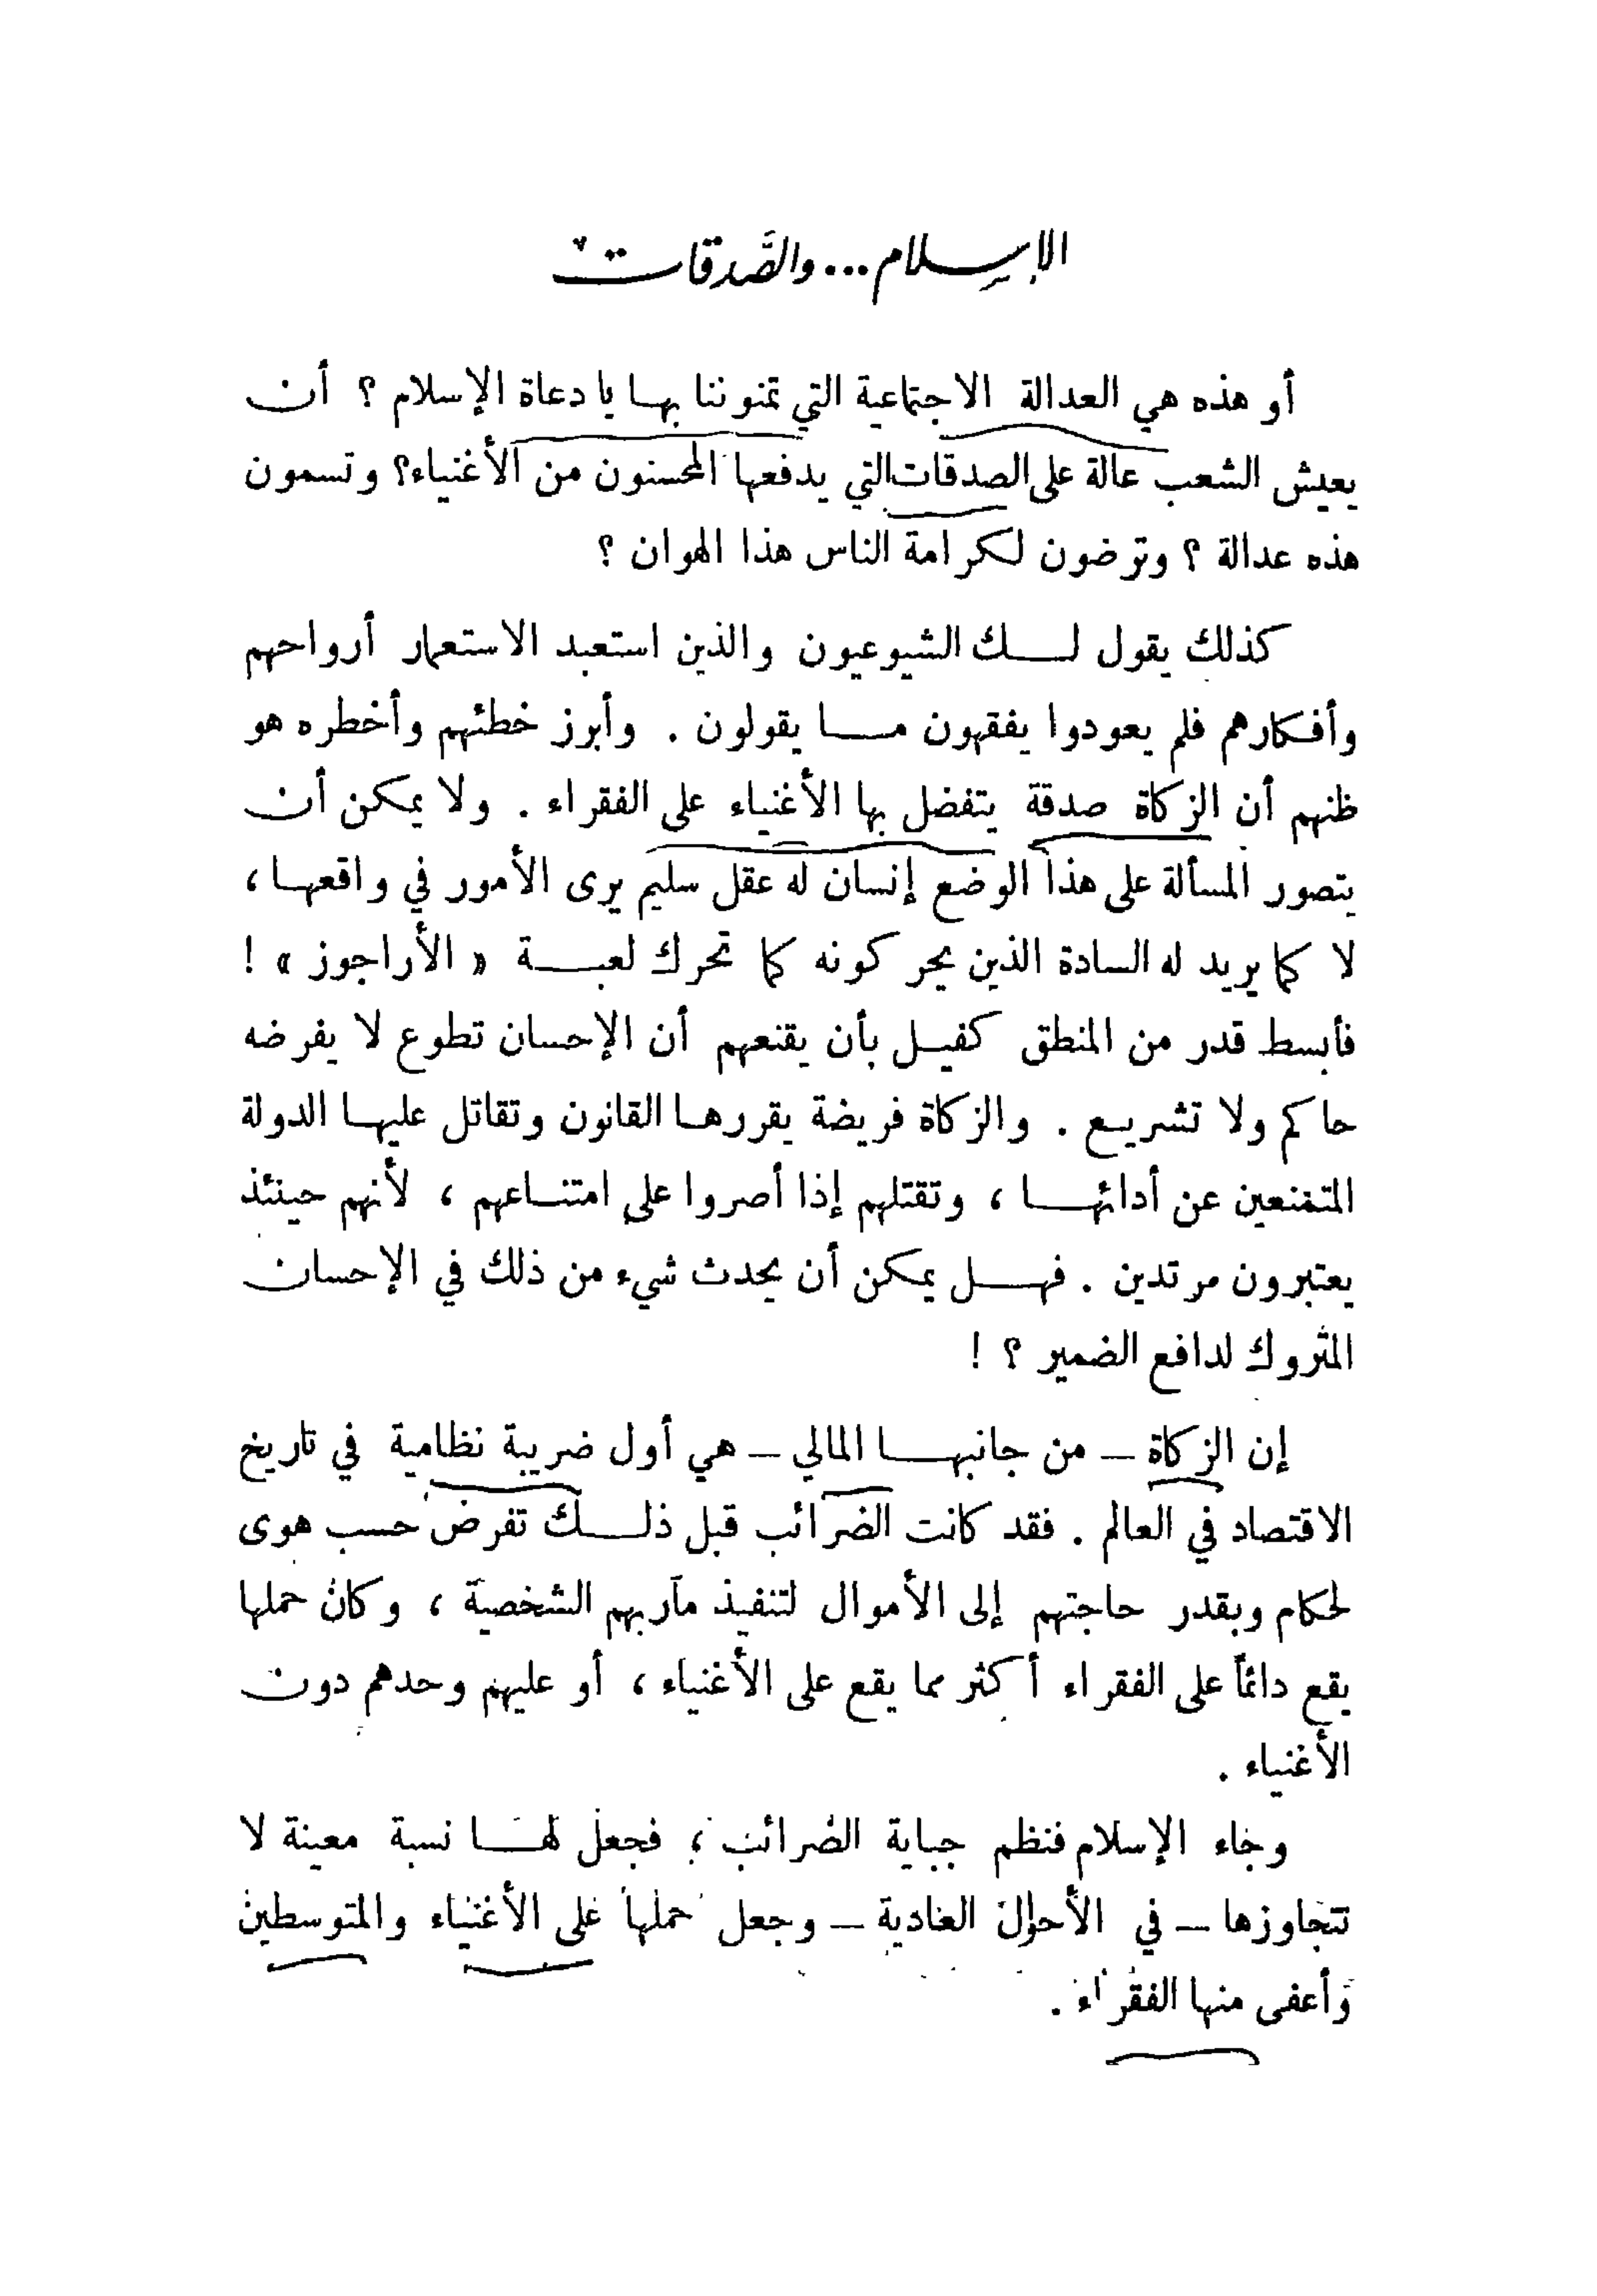 الإسلام... والصَّدقات
أو هذه هي العدالة الاجتماعية التي تمنوننا بها يا دعاة الإسلام ؟ أن
يعيش الشعب عالة على الصدقات التي يدفعها المحسنون من الأغنياء؟ وتسمون
هذه عدالة ؟ وترضون لكرامة الناس هذا الهوان ؟
كذلك يقول لك الشيوعيون والذين استعبد الاستعمار أرواحهم
وأفكارهم فلم يعودوا يفقهون ما يقولون . وأبرز خطئهم وأخطره هو
ظنهم أن الزكاة صدقة يتفضل بها الأغنياء على الفقراء . ولا يمكن أن
يتصور المسألة على هذا الوضع إنسان له عقل سليم يرى الأمور في واقعها ،
لا كما يريد له السادة الذين يحركونه كما تحرك لعبة « الأراجوز » !
فأبسط قدر من المنطق كفيل بأن يقنعهم أن الإحسان تطوع لا يفرضه
حاكم ولا تشريع . والزكاة فريضة يقررها القانون وتقاتل عليها الدولة
المتمنعين عن أدائها ، وتقتلهم إذا أصروا على امتناعهم ، لأنهم حينئذ
يعتبرون مرتدين . فهل يمكن أن يحدث شيء من ذلك في الإحسان
المتروك لدافع الضمير ؟ !
إن الزكاة – من جانبها المالي – هي أول ضريبة نظامية في تاريخ
الاقتصاد في العالم . فقد كانت الضرائب قبل ذلك تفرض حسب هوى
لحكام وبقدر حاجتهم إلى الأموال لتنفيذ مآربهم الشخصية ، وكان حملها
يقع دائماً على الفقراء أكثر مما يقع على الأغنياء ، أو عليهم وحدهم دون
الأغنياء .
وجاء الإسلام فنظم جباية الضرائب ، فجعل لها نسبة معينة لا
تتجاوزها – في الأحوال العادية – وجعل حملها على الأغنياء والمتوسطين
وأعفى منها الفقراء .